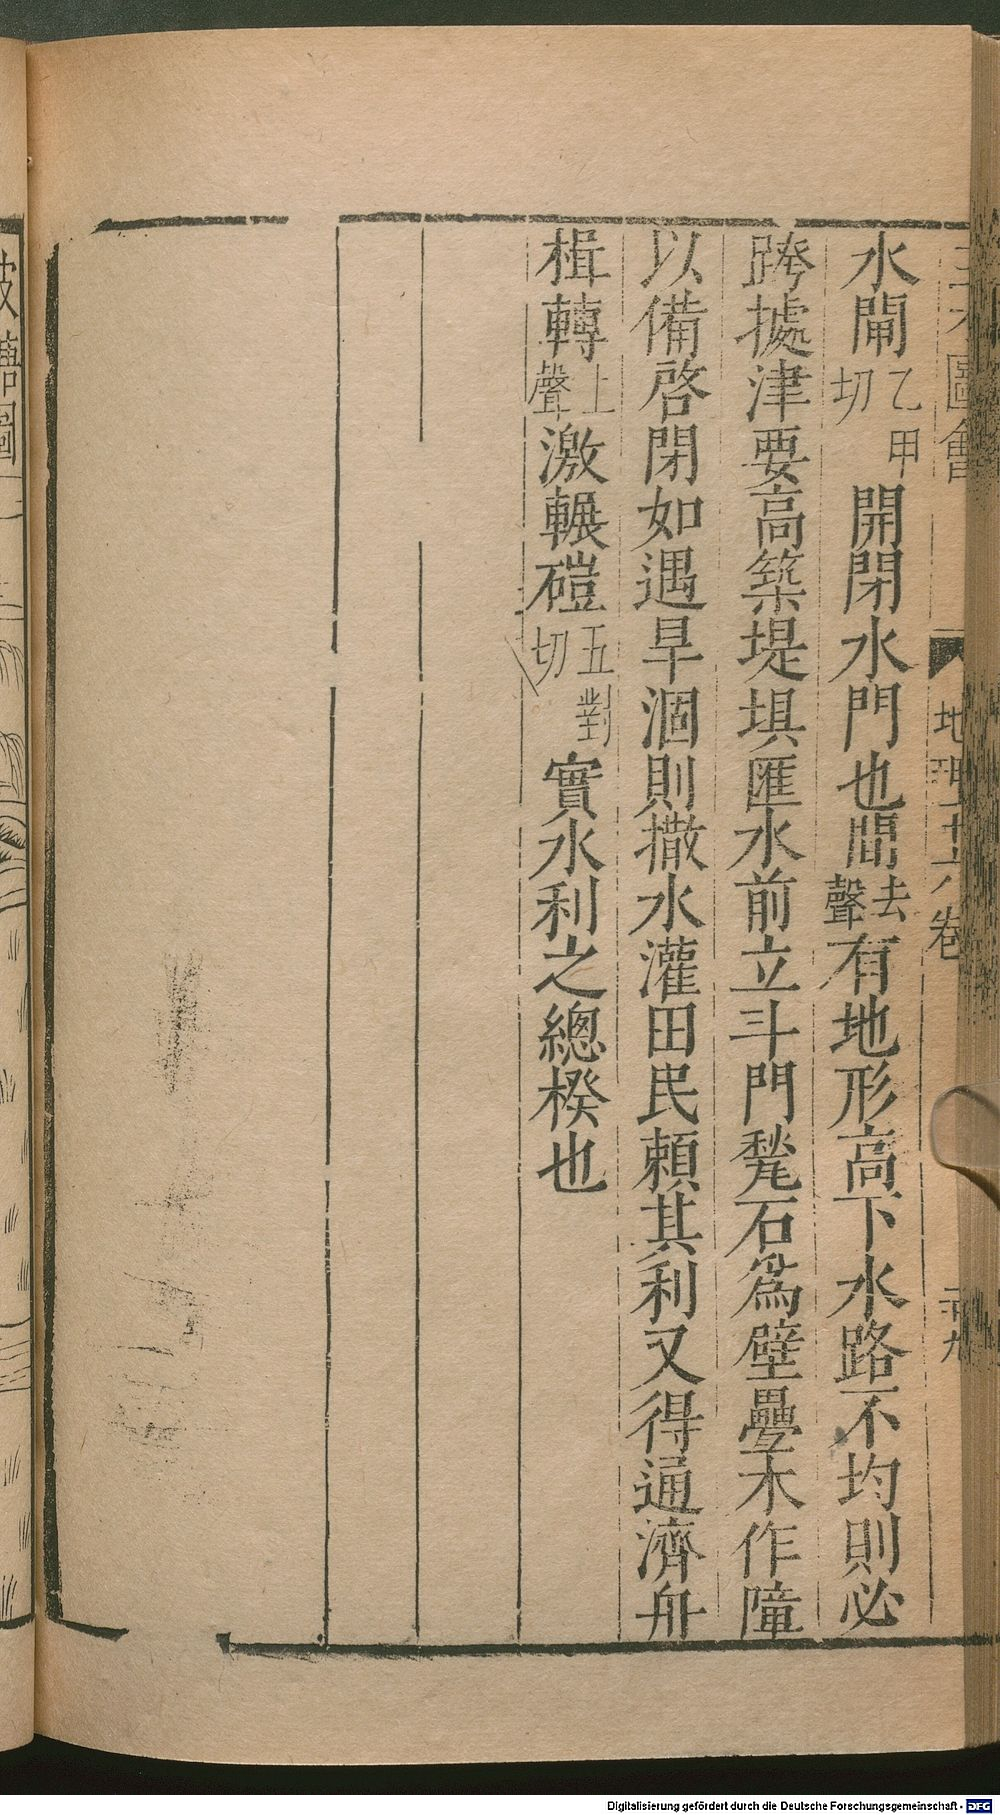 三才圖會 地理十六卷 三十九
水閘乙甲切開閉水門也間去聲有地形高下水路不均則必
跨據津要高築堤垻匯水前立斗門甃石爲壁疊木作障
以備啓閉如遇旱涸則撒水灌田民賴其利又得通濟舟
楫轉上聲激輾磑五對切實水利之總揆也
陂塘圖
Digitalisierung gefördert durch die Deutsche Forschungsgemeinschaft - DFG